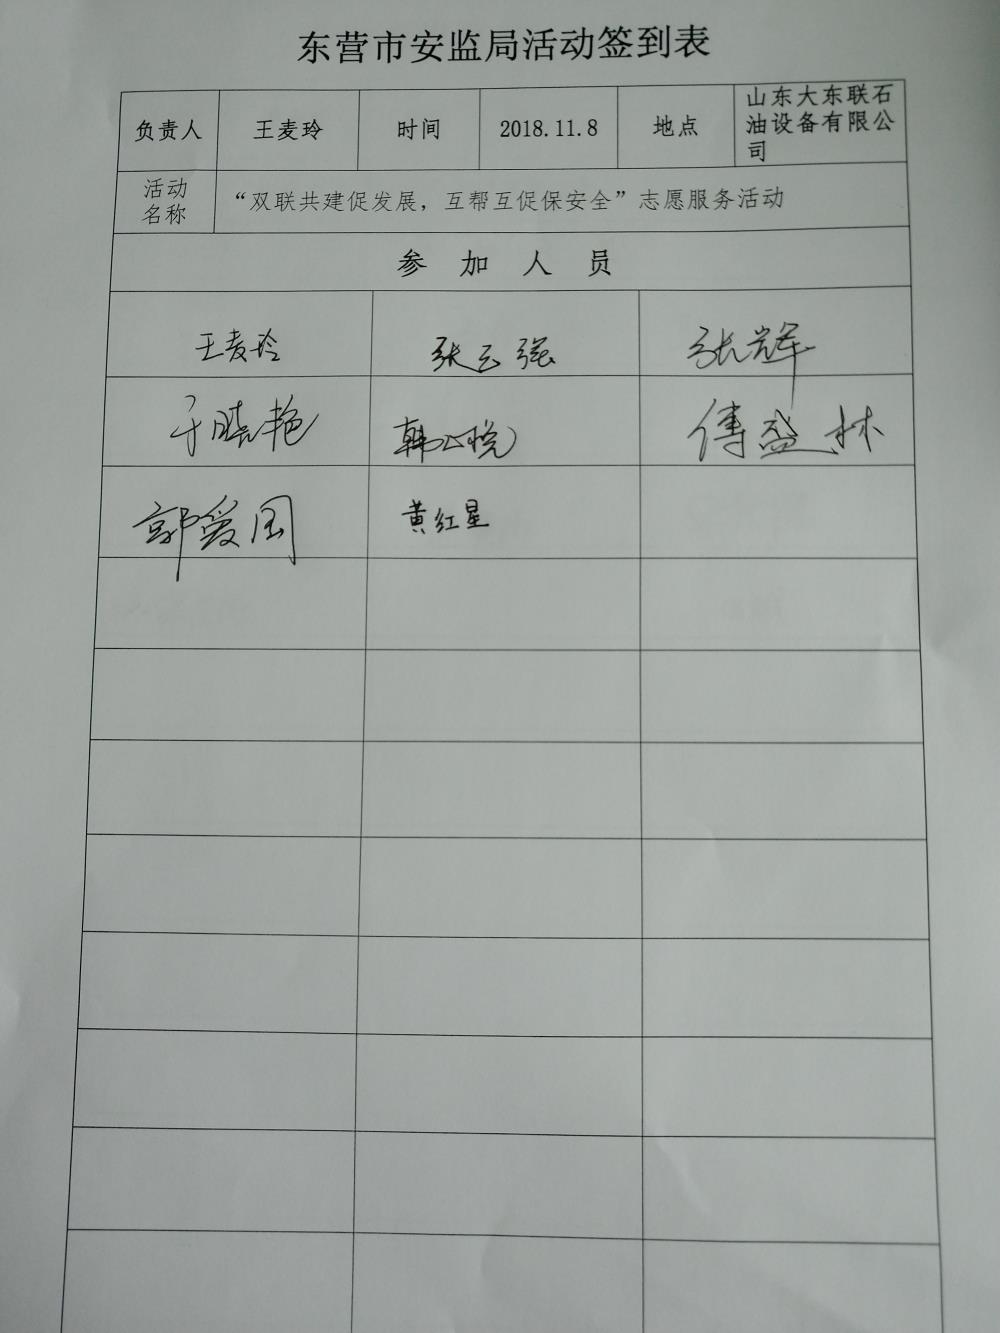 东营市安监局活动签到表
负责人 王麦玲 时间 2018.11.8 地点 山东大东联石
油设备有限公
司
活动
名称
“双联共建促发展，互帮互促保安全”志愿服务活动
参加人员
王麦玲 张云强 张辉
于晓艳 韩 悦 傅盛林
郭爱国 黄红星